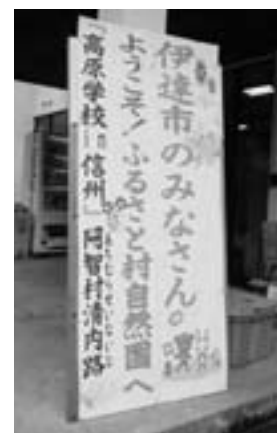 伊達市のみなさん。
ようこそ!ふるさと村自然園へ
「高原学校in信州」阿智村清内路